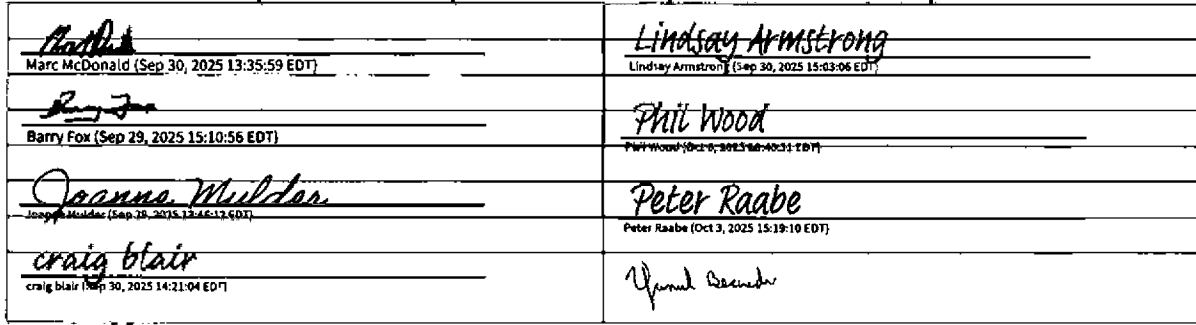 Marc McDonald (Sep 30, 2025 13:35:59 EDT)
Barry Fox
Barry Fox (Sep 29, 2025 15:10:56 EDT)
Joanne Mulder
Joanne Mulder (Sep 29, 2025
craig blair
craig blair (Sep 30, 2025 14:21:04 EDT)
Lindsay Armstrong
Lindsay Armstrong (Sep 30, 2025 15:03:06 EDT)
Phil Wood
Phil Wood (Oct 2025 EDT)
Peter Raabe
Peter Raabe (Oct 3, 2025 15:19:10 EDT)